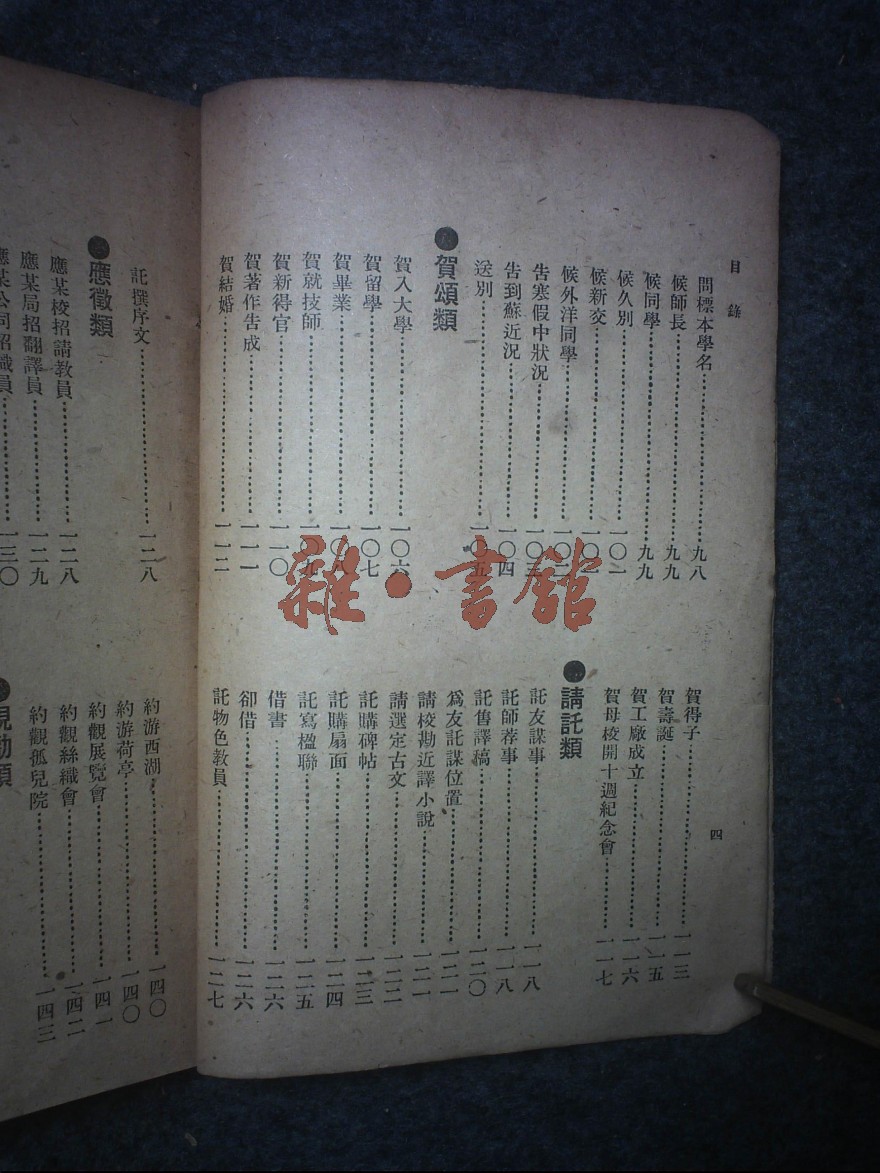 目錄
問標本學名……九八
候師長……九九
候同學……九九
候久別……一〇一
候新交……
候外洋同學……一〇二
告寒假中狀況……一〇三
告到蘇近況……一〇四
送別……一〇五
●賀頌類
賀入大學……一〇六
賀留學……一〇七
賀畢業……一〇八
賀就技師……一〇九
賀新得官……一一〇
賀著作告成……一一一
賀結婚……一一二
賀得子……一一三
賀壽誕……一一五
賀工廠成立……一一六
賀母校開十週紀念會……一一七
●請託類
託友謀事……一一八
託師荐事……一一八
託售譯稿……一二〇
爲友託謀位置……一二一
請校勘近譯小說……一二一
請選定古文……一二二
託購碑帖……一二三
託購扇面……一二四
託寫楹聯……一二五
借書……一二六
卻借……一二六
託物色教員……一二七
四
託撰序文……一二八
●應徵類
應某校招請教員……一二八
應某局招翻譯員……一二九
應某公司招職員……一三〇
約游西湖……一四〇
約游荷亭……一四〇
約觀展覽會……一四一
約觀絲織會……一四二
約觀孤兒院……一四三
雜·書館